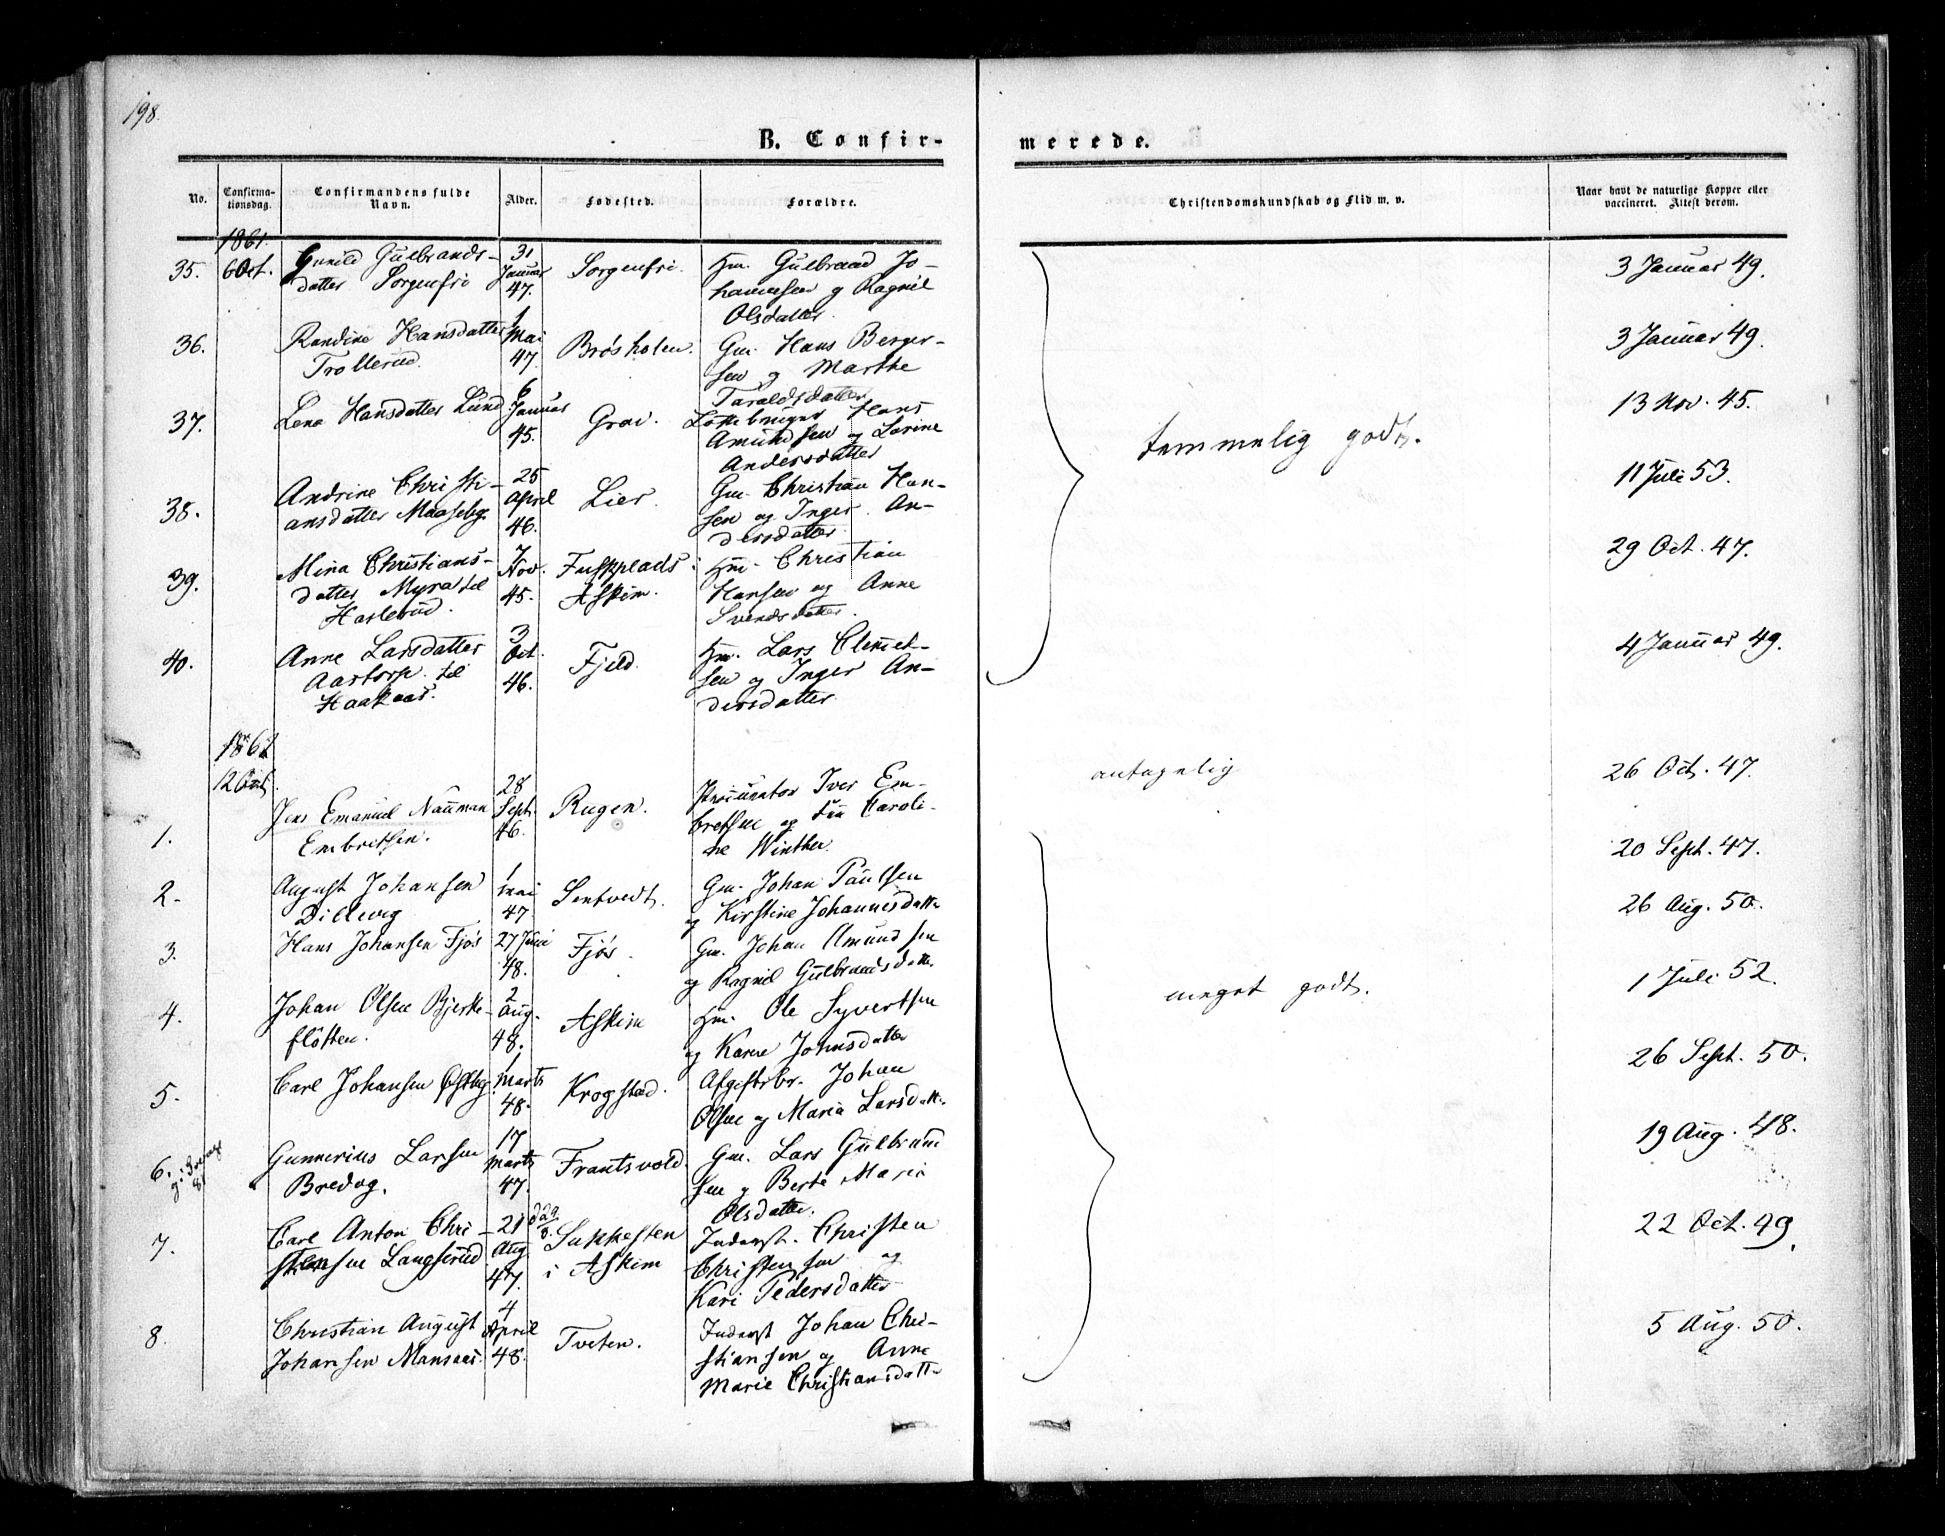 198.
B. Confir-
merede.
No.
Confirma-
tionsdag.
Confirmandens fulde
Navn.
Alder.
Fødested.
Forældre.
Christendomskundskab og Flid m. v.
Naar havt de naturlige Kopper eller
vaccineret. Attest derom.
1861.
35. 6 Oct. Gunild Gulbrands-
datter Sorgenfri
31
Januar
47.
Sorgenfri.
Hm. Gulbrand Jo-
hannesen og Ragnil
Olsdatter.
3 Januar 49.
36. Randine Hansdatter
Trollerud.
1
Mai
47.
Brösholen.
Gm. Hans Berger-
sen og Marthe
Taraldsdatter
3 Januar 49.
37. Lena Hansdatter Lund
6
Januar
45.
Grav.
Hans
Amundsen og Larine
Andersdatter
13 Nov. 45.
temmelig godt.
38. Andrine Christi-
ansdatter
25
April
46.
Lier.
Gm. Christian Han-
sen og Inger An-
dersdatter
11 Juli 53.
39. Mina Christians-
datter Myra til
Haslerud.
7
Nov.
45.
Askim.
Hm. Christian
Hansen og Anne
Svendsdatter.
29 Oct. 47.
40. Anne Larsdatter
Aastorp til
Haakaas.
3
Oct.
46.
Fjeld.
Hm. Lars Clemet-
sen og Inger An-
dersdatter
4 Januar 49.
1862
12 Oct.
1. Jens Emanuel Nauman
Embretsen.
28
Sept.
46.
Rugen.
Procurator Iver Em-
bretsen og Caroli-
ne Winther.
antagelig
26 Oct. 47.
20 Sept. 47.
2. August Johansen
Dillevig
1
Mai
47
Sentvedt.
Gm. Johan Paulsen
og Kirstine Johannesdatter
26 Aug. 50.
3. Hans Johansen Fjøs
27 Juni
48.
Fjøs.
Gm. Johan Amundsen
og Ragnil Gulbrandsdatter
1 Juli 52.
4. Johan Olsen Bjerke-
fløtten.
2
Aug.
48.
Askim
Hm. Ole Syvertsen
og Karen Johnsdatter
meget godt.
26 Sept. 50.
5. Carl Johansen Østby.
1
Marts
48.
Krogstad.
Johan
Olsen og Maria Larsdatter
19 Aug. 48.
6. Gunnerius Larsen
Bredag.
17
Marts
47.
Frantsvold.
Gm. Lars Gulbrand
sen og Berte Maria
Olsdatter.
22 Oct. 49.
7. Carl Anton Chri-
stensen Langserud
21
Aug
47.
Sukkesten
i Askim
Inderst. Christen
Christensen og
Kari Pedersdatter
8. Christian August
Johansen Mansaas.
4
April
48.
Tveten.
Inderst Johan Chri-
stiansen og Anne
Marie Christiansdatter
5 Aug. 50.